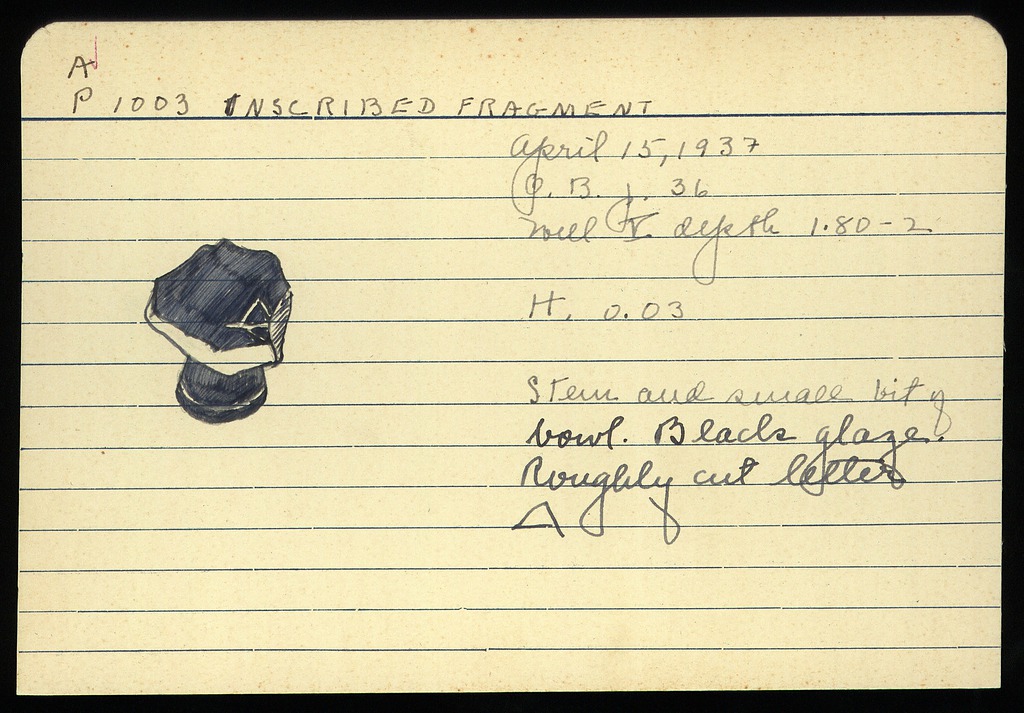 A
P 1003 INSCRIBED FRAGMENT
April 15, 1937
P. B. j. 36
Well V depth 1.80-2
H. 0.03
Stem and small bit of
bowl. Black glaze.
Roughly cut letters
Δ